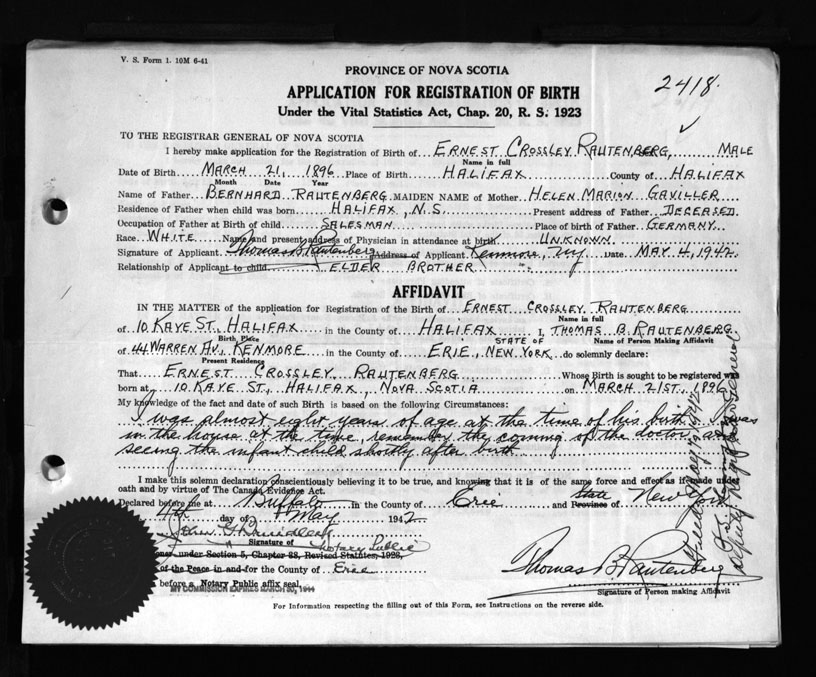 V. S. Form 1. 10M 6-41
PROVINCE OF NOVA SCOTIA
2418.
APPLICATION FOR REGISTRATION OF BIRTH
Under the Vital Statistics Act, Chap. 20, R. S. 1923
TO THE REGISTRAR GENERAL OF NOVA SCOTIA
I hereby make application for the Registration of Birth of ERNEST CROSSLEY RAUTENBERG, MALE
Name in full
Date of Birth MARCH 21, 1896 Place of Birth HALIFAX County of HALIFAX
Month Date Year
Name of Father BERNHARD RAUTENBERG MAIDEN NAME of Mother HELEN MARION GAVILLER
Residence of Father when child was born HALIFAX, N.S. Present address of Father DECEASED
Occupation of Father at Birth of child SALESMAN Place of birth of Father GERMANY
Race WHITE Name and present address of Physician in attendance at birth UNKNOWN
Signature of Applicant Thomas B. Rautenberg Address of Applicant Kenmore, NY Date MAY 4, 1942
Relationship of Applicant to child ELDER BROTHER
AFFIDAVIT
IN THE MATTER of the application for Registration of the Birth of ERNEST CROSSLEY RAUTENBERG
Name in full
of 10 KAYE ST., HALIFAX in the County of HALIFAX I, THOMAS B. RAUTENBERG
Birth Place STATE OF Name of Person Making Affidavit
of 44 WARREN AV., KENMORE in the County of ERIE, NEW YORK do solemnly declare:
Present Residence
That ERNEST CROSSLEY RAUTENBERG Whose Birth is sought to be registered was
born at 10 KAYE ST., HALIFAX, NOVA SCOTIA on MARCH 21ST, 1896
My knowledge of the fact and date of such Birth is based on the following Circumstances:
I was almost eight years of age at the time of his birth. I was
in the house at the time, remember the coming of the doctor, and
seeing the infant child shortly after birth
I make this solemn declaration conscientiously believing it to be true, and knowing that it is of the same force and effect as if made under
oath and by virtue of The Canada Evidence Act.
Declared before me at Buffalo in the County of Erie and Province of State New York
4th day of May 1942
Signature of Notary Public
under Section 5, Chapter 28, Revised Statutes, 1923,
of the Peace in and for the County of Erie
before a Notary Public affix seal.
MY COMMISSION EXPIRES MARCH 30, 1944
Thomas B. Rautenberg
Signature of Person making Affidavit
For Information respecting the filling out of this Form, see Instructions on the reverse side.
Deputy Registrar General